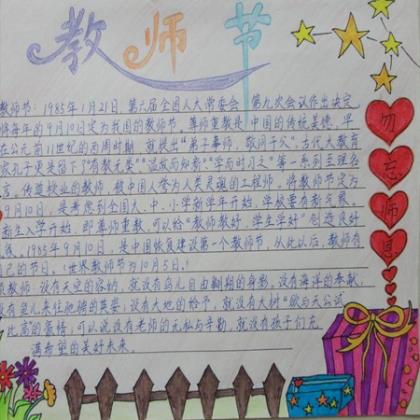 教师节
教师节：1985年1月21日，第六届全国人大常委会 第九次会议作出决定
将每年的9月10日定为我国的教师节。尊师重教是中国的传统美德，早
在公元前11世纪的西周时期 就提出“弟子事师，敬同于父”。古代大教育
家孔子更是留了“有教无类”“温故而知新”“学而时习之”等一系列至理名
言。传道授业的教师，被中国人誉为人类灵魂的工程师。将教师节定为
9月10日，是考虑到全国大、中、小学新学年开始，学校要有新气象。
新生入学开始，即尊师重教，可以给“教师教好，学生学好”创造良好
1985年9月10日，是中国恢复建设第一个教师节，从此以后，教师有
自己的节日。（世界教师节为10月5日。）
教师：没有天空的容纳，就没有鸟儿自由翱翔的身影，没有海洋的奉献，
没有鱼儿来往驰骋的英姿，没有大地的给予，就没有大树“欲与天公试
比高”的豪情，可以说没有老师的无私与辛勤，就没有孩子们充
满希望的美好未来。
勿忘师恩